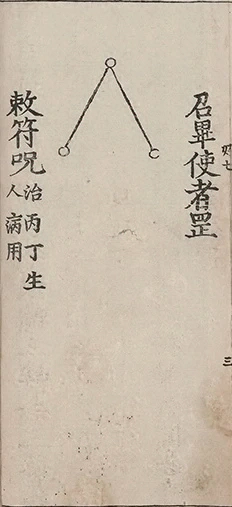 七
三
召畢使者罡
敕符呪
治丙丁生
人病用